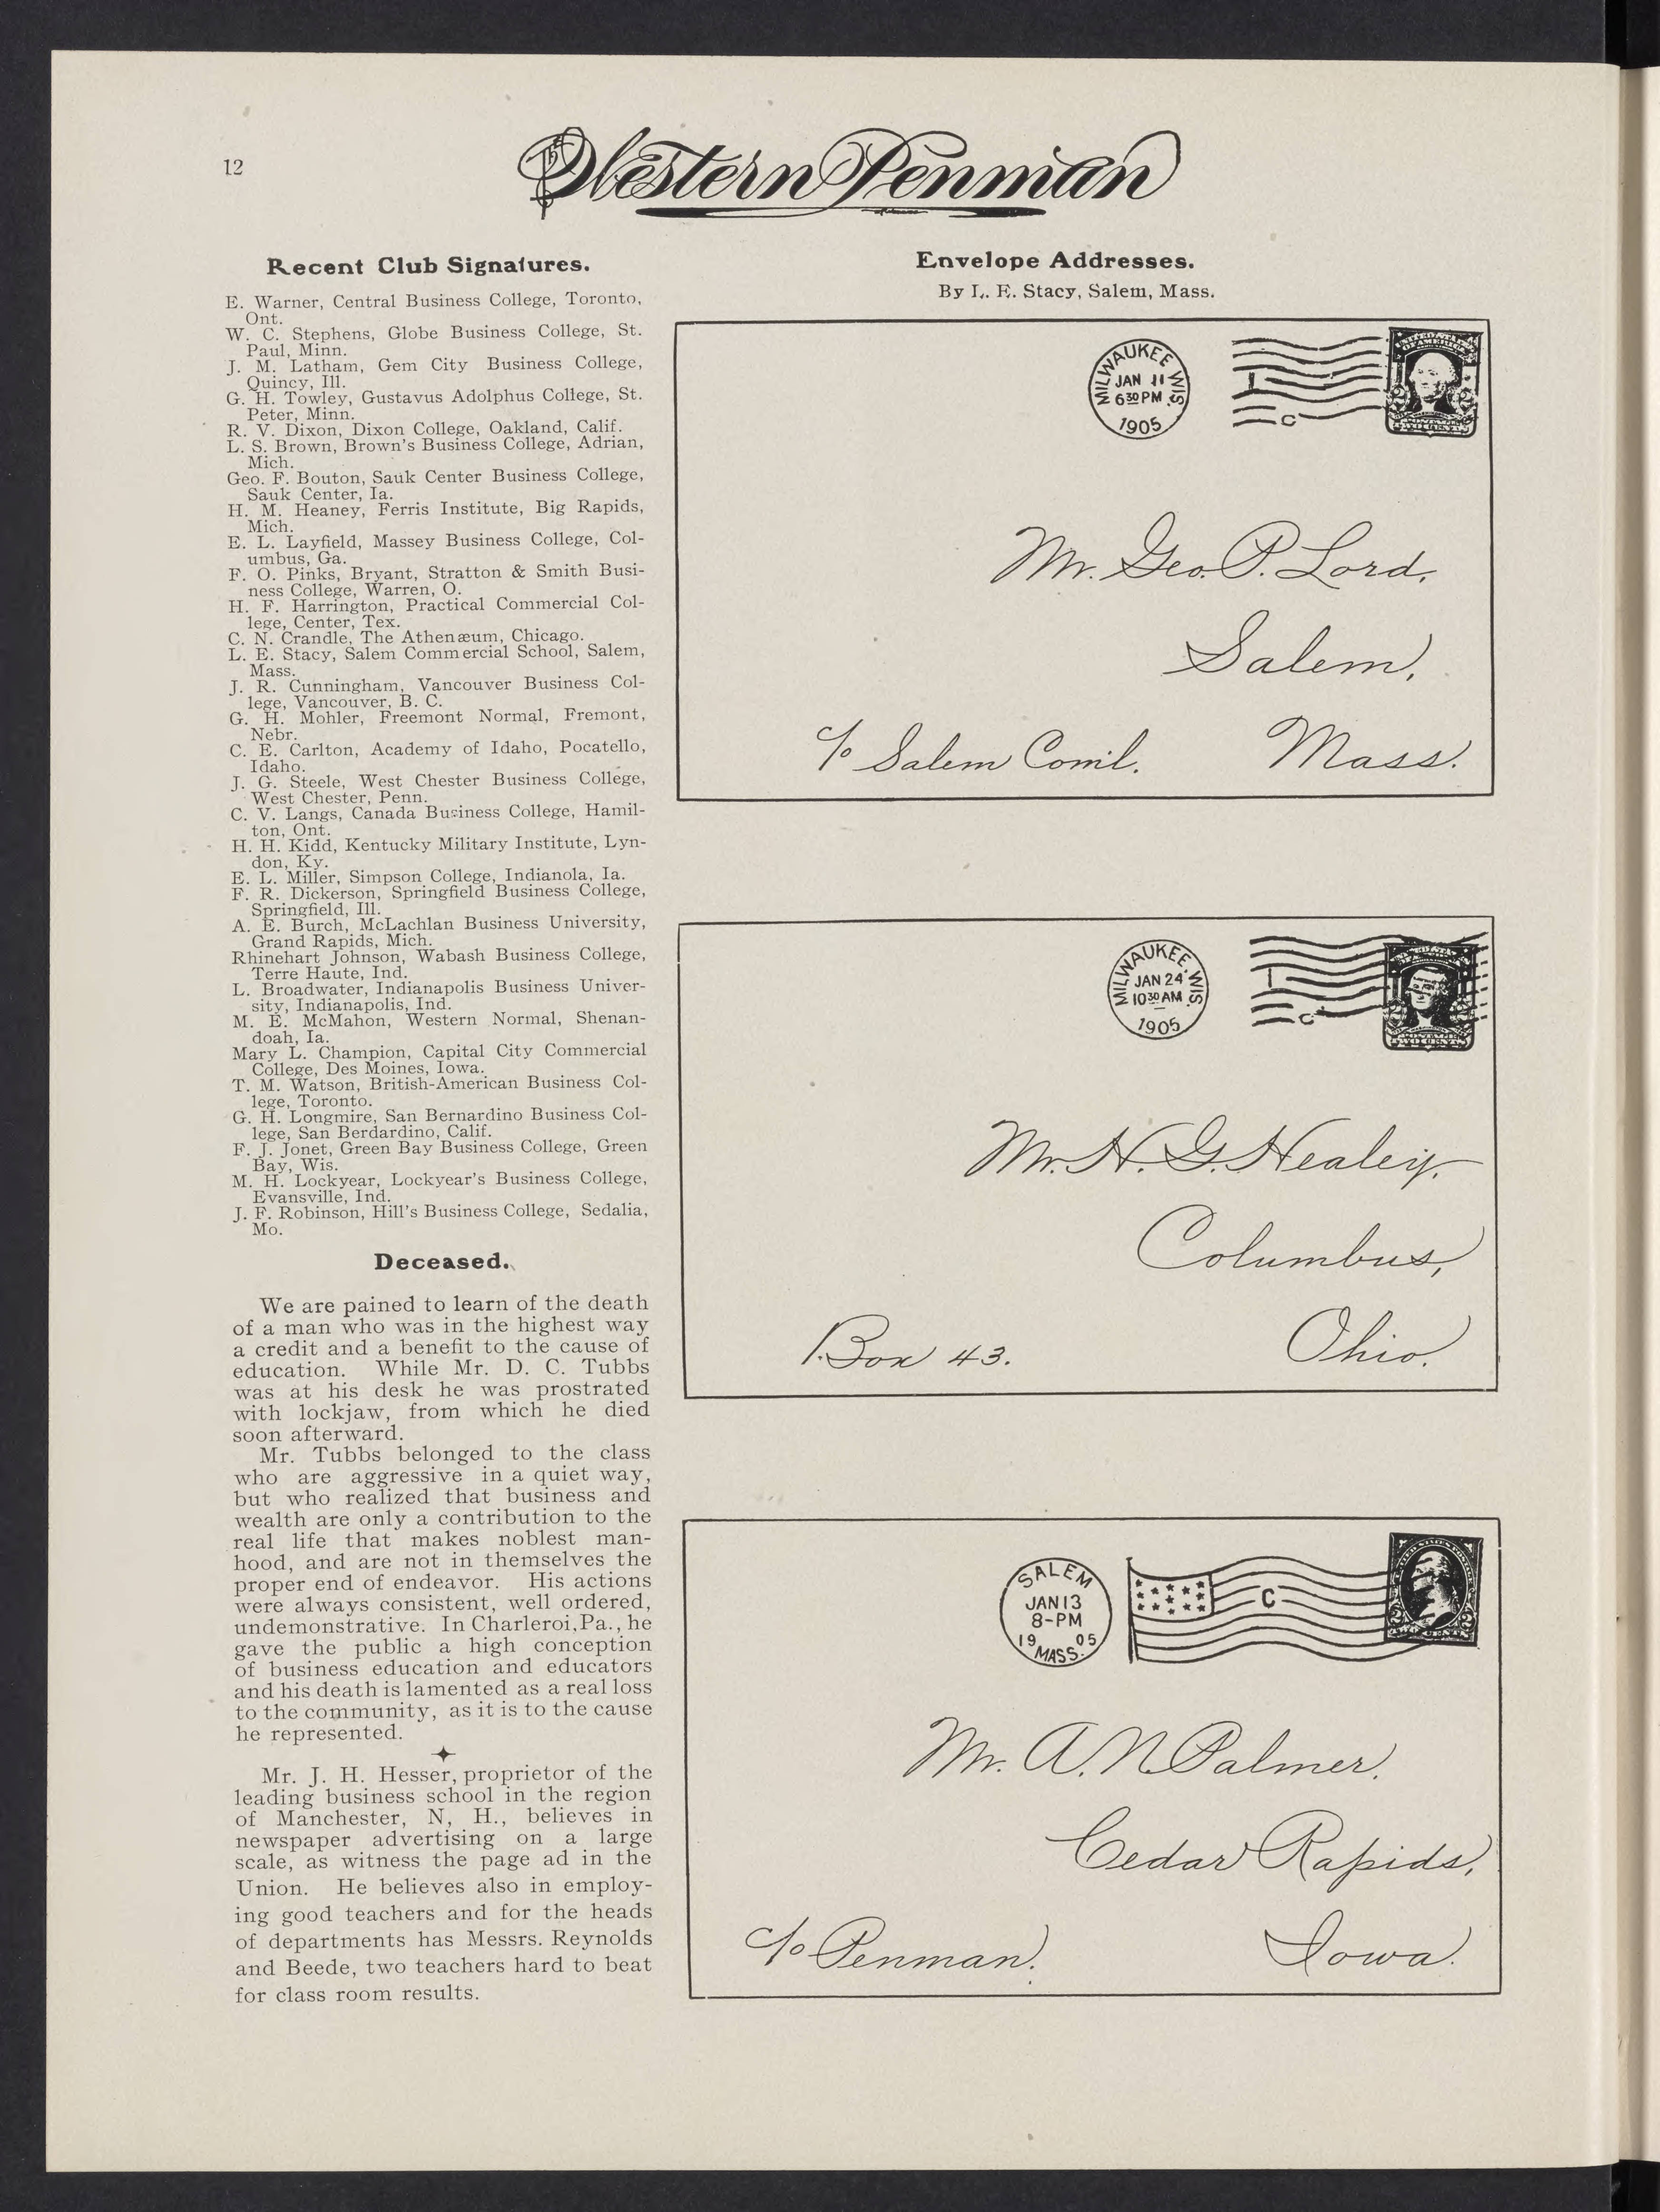 12
Western Penman
Recent Club Signatures.
E. Warner, Central Business College, Toronto,
Ont.
W. C. Stephens, Globe Business College, St.
Paul, Minn.
J. M. Latham, Gem City Business College,
Quincy, Ill.
G. H. Towley, Gustavus Adolphus College, St.
Peter, Minn.
R. V. Dixon, Dixon College, Oakland, Calif.
L. S. Brown, Brown's Business College, Adrian,
Mich.
Geo. F. Bouton, Sauk Center Business College,
Sauk Center, Ia.
H. M. Heaney, Ferris Institute, Big Rapids,
Mich.
E. L. Layfield, Massey Business College, Col-
umbus, Ga.
F. O. Pinks, Bryant, Stratton & Smith Busi-
ness College, Warren, O.
H. F. Harrington, Practical Commercial Col-
lege, Center, Tex.
C. N. Crandle, The Athenæum, Chicago.
L. E. Stacy, Salem Commercial School, Salem,
Mass.
J. R. Cunningham, Vancouver Business Col-
lege, Vancouver, B. C.
G. H. Mohler, Freemont Normal, Fremont,
Nebr.
C. E. Carlton, Academy of Idaho, Pocatello,
Idaho.
J. G. Steele, West Chester Business College,
West Chester, Penn.
C. V. Langs, Canada Business College, Hamil-
ton, Ont.
H. H. Kidd, Kentucky Military Institute, Lyn-
don, Ky.
E. L. Miller, Simpson College, Indianola, Ia.
F. R. Dickerson, Springfield Business College,
Springfield, Ill.
A. E. Burch, McLachlan Business University,
Grand Rapids, Mich.
Rhinehart Johnson, Wabash Business College,
Terre Haute, Ind.
L. Broadwater, Indianapolis Business Univer-
sity, Indianapolis, Ind.
M. E. McMahon, Western Normal, Shenan-
doah, Ia.
Mary L. Champion, Capital City Commercial
College, Des Moines, Iowa.
T. M. Watson, British-American Business Col-
lege, Toronto.
G. H. Longmire, San Bernardino Business Col-
lege, San Berdardino, Calif.
F. J. Jonet, Green Bay Business College, Green
Bay, Wis.
M. H. Lockyear, Lockyear's Business College,
Evansville, Ind.
J. F. Robinson, Hill's Business College, Sedalia,
Mo.
Deceased.
We are pained to learn of the death
of a man who was in the highest way
a credit and a benefit to the cause of
education. While Mr. D. C. Tubbs
was at his desk he was prostrated
with lockjaw, from which he died
soon afterward.
Mr. Tubbs belonged to the class
who are aggressive in a quiet way,
but who realized that business and
wealth are only a contribution to the
real life that makes noblest man-
hood, and are not in themselves the
proper end of endeavor. His actions
were always consistent, well ordered,
undemonstrative. In Charleroi, Pa., he
gave the public a high conception
of business education and educators
and his death is lamented as a real loss
to the community, as it is to the cause
he represented.
Mr. J. H. Hesser, proprietor of the
leading business school in the region
of Manchester, N, H., believes in
newspaper advertising on a large
scale, as witness the page ad in the
Union. He believes also in employ-
ing good teachers and for the heads
of departments has Messrs. Reynolds
and Beede, two teachers hard to beat
for class room results.
Envelope Addresses.
By L. E. Stacy, Salem, Mass.
MILWAUKEE WIS.
JAN 11
6 30 PM
1905
1
C
2 2
TWO CENTS
Mr. Geo. P. Lord,
Salem,
c/o Salem Coml. Mass.
MILWAUKEE, WIS.
JAN 24
10 30 AM
1905
1
C
2 2
TWO CENTS
Mr. H. G. Healey,
Columbus,
Box 43. Ohio.
SALEM
JAN 13
8-PM
19 05
MASS.
C
2 2
Mr. A. N. Palmer,
Cedar Rapids,
c/o Penman. Iowa.